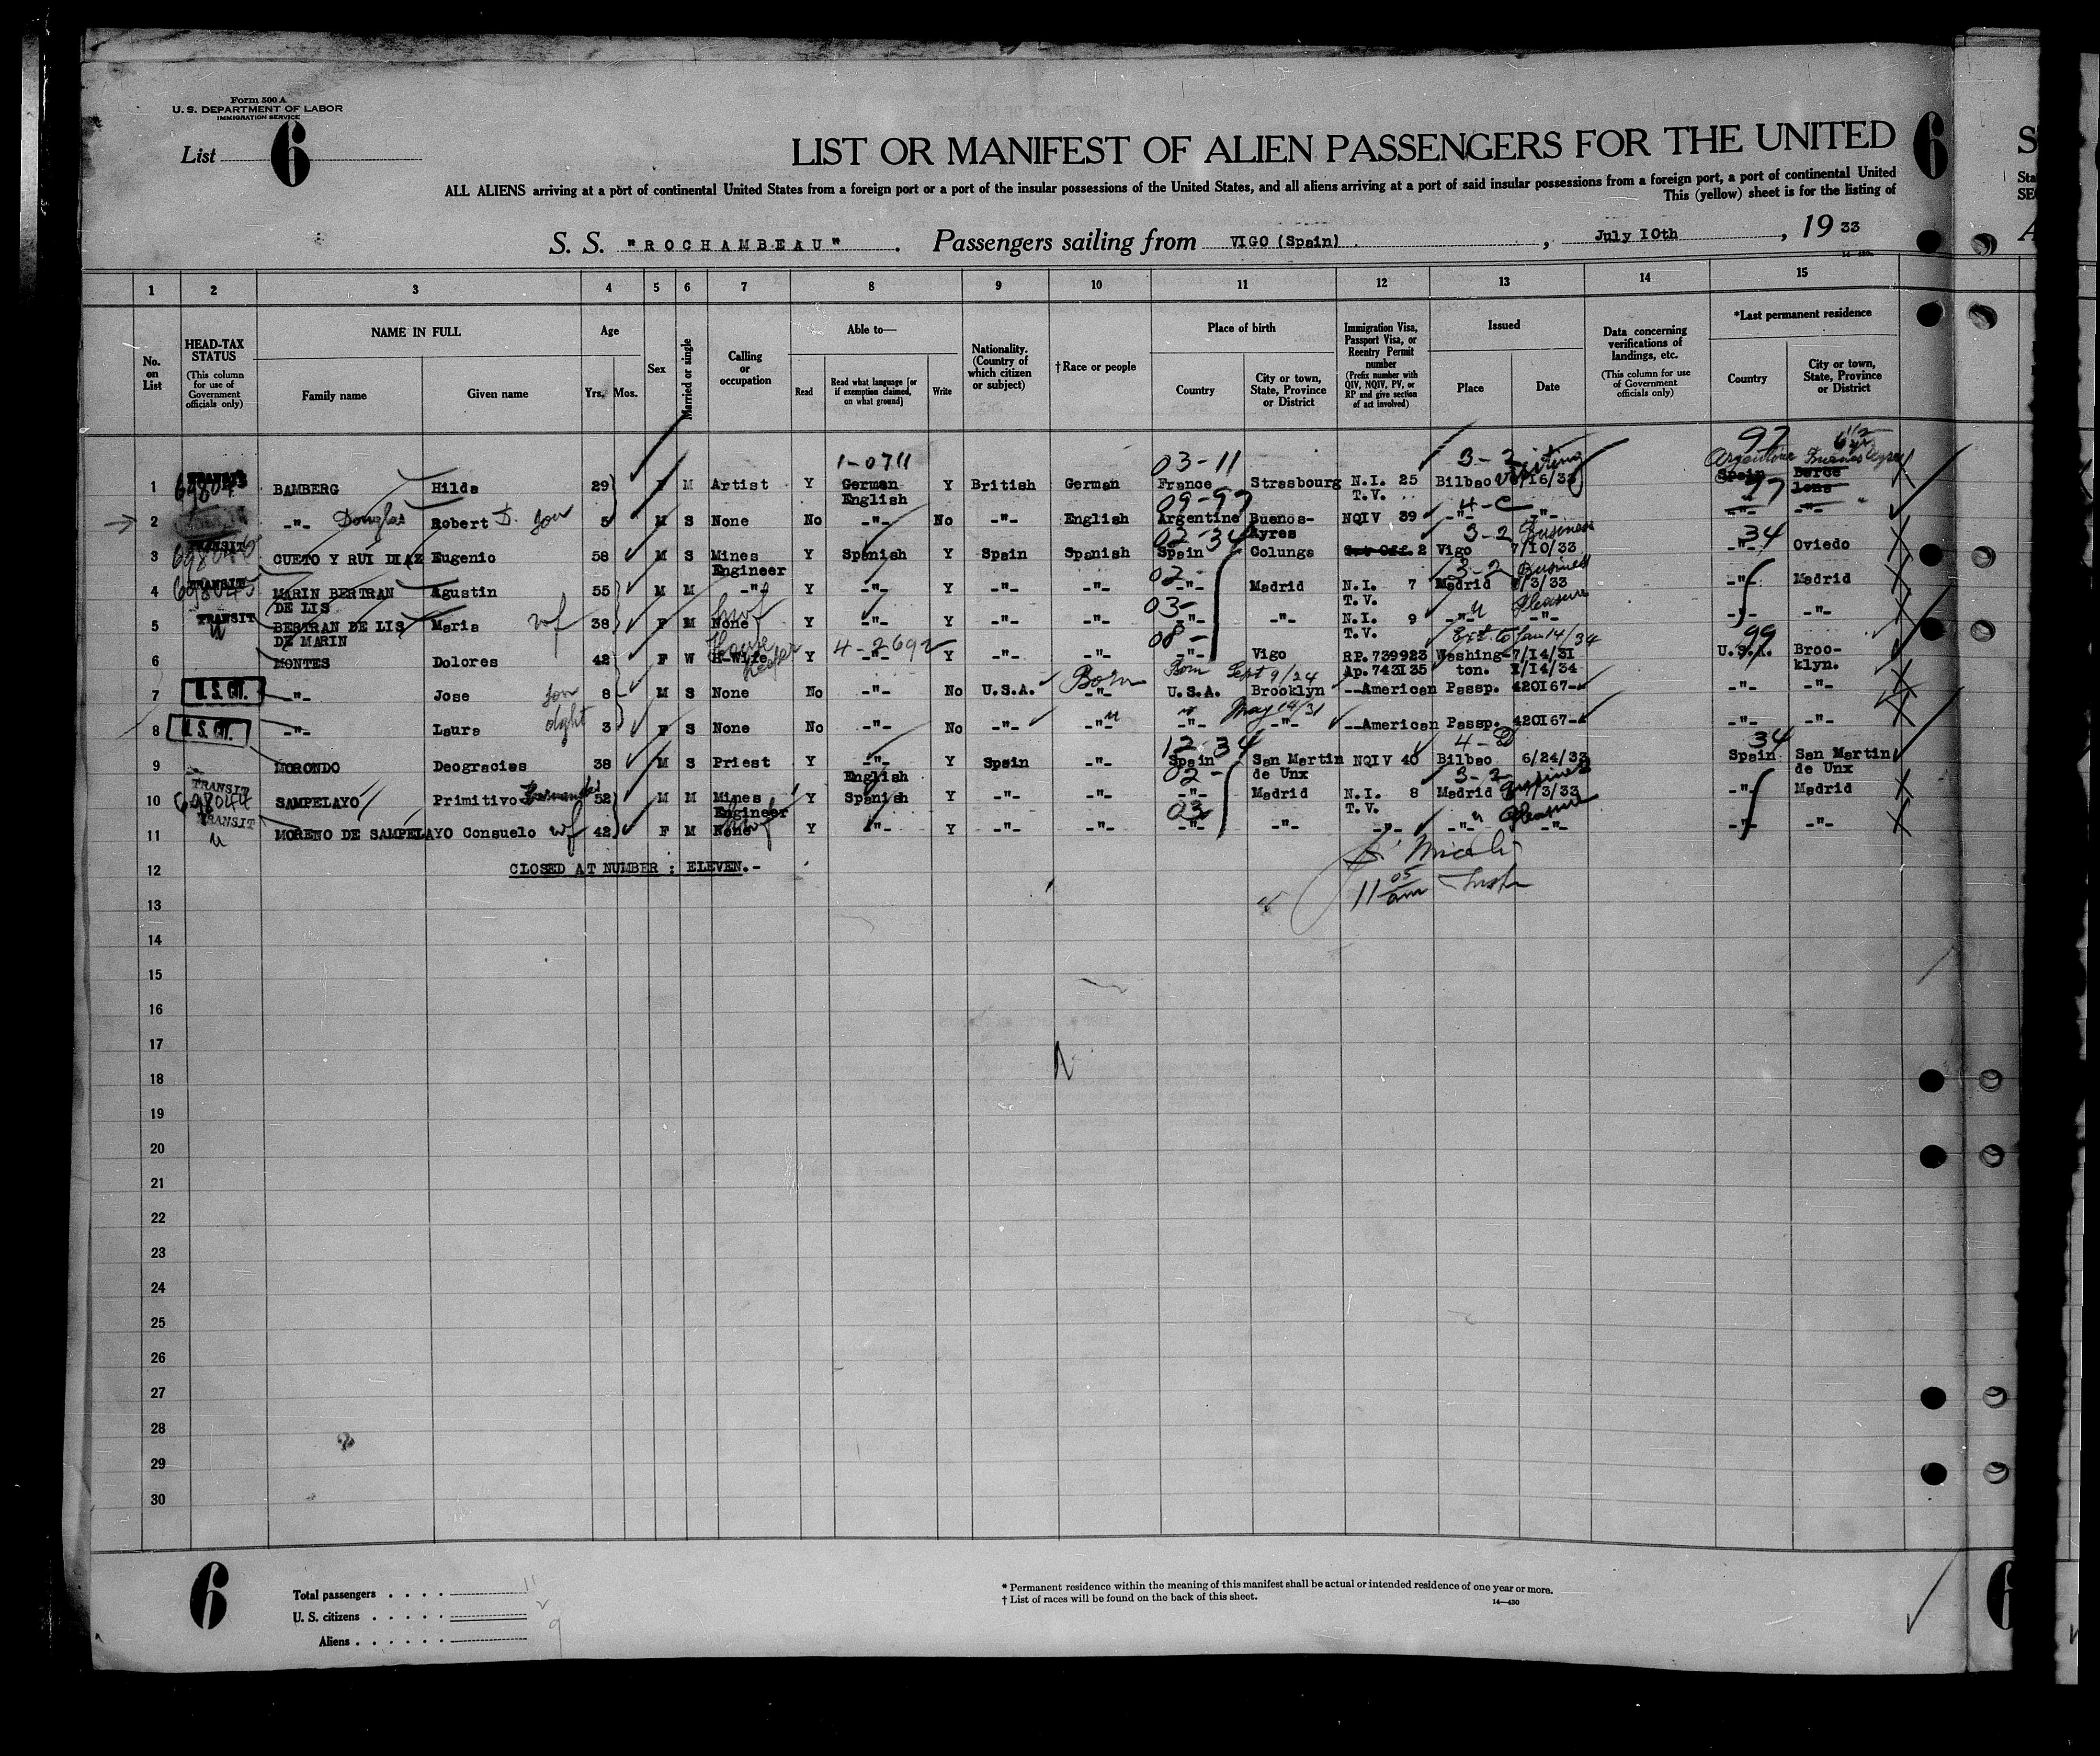 Form 500 A
U. S. DEPARTMENT OF LABOR
IMMIGRATION SERVICE
List 6
6
LIST OR MANIFEST OF ALIEN PASSENGERS FOR THE UNITED
ALL ALIENS arriving at a port of continental United States from a foreign port or a port of the insular possessions of the United States, and all aliens arriving at a port of said insular possessions from a foreign port, a port of continental United
This (yellow) sheet is for the listing of
S. S. "ROCHAMBEAU" . Passengers sailing from VIGO (Spain) , July 10th , 19 33
1 2 3 4 5 6 7 8 9 10 11 12 13 14 15
No. on List
HEAD-TAX STATUS
(This column for use of Government officials only)
NAME IN FULL
Family name Given name
Age
Yrs. Mos.
Sex
Married or single
Calling or occupation
Able to—
Read
Read what language [or if exemption claimed, on what ground]
Write
Nationality. (Country of which citizen or subject)
†Race or people
Place of birth
Country
City or town, State, Province or District
Immigration Visa, Passport Visa, or Reentry Permit number
(Prefix number with QIV, NQIV, PV, or RP and give section of act involved)
Issued
Place Date
Data concerning verifications of landings, etc.
(This column for use of Government officials only)
*Last permanent residence
Country
City or town, State, Province or District
1-0711 03-11 3-2 97 6 1/2 yr
Argentine Buenos Ayres
1 BAMBERG Hilda 29 F M Artist Y German Y British German France Strasbourg N.I. 25 Bilbao /16/33 Spain Barce
English T.V. lona
09-97 4-C 97
2 -"- Douglas Robert D. son 5 M S None No -"- No -"- English Argentine Buenos- NQIV 39 -"- -"- -"- -"-
Ayres
02-34 3-2 Business 34
3 TRANSIT CUETO Y RUI DIAZ Eugenio 58 M S Mines Y Spanish Y Spain Spanish Spain Colunga 2 Vigo 7/10/33 -"- Oviedo
Engineer
02- 3-2 Business
4 TRANSIT MARIN BERTRAN Agustin 55 M M -"- Y -"- Y -"- -"- -"- Madrid N.I. 7 Madrid /3/33 -"- Madrid
DE LIS T.V.
hwf 03- Pleasure
5 TRANSIT BERTRAN DE LIS Maria wf 38 F M None Y -"- Y -"- -"- -"- -"- N.I. 9 -"- -"- -"- -"-
DE MARIN T.V.
House keeper 4-2692 08- Ext. to Jan 14/34 99
6 MONTES Dolores 42 F W H-Wife Y -"- Y -"- -"- -"- Vigo RP. 739923 Washing- 7/14/31 U.S.A. Broo-
Ap. 743135 ton. 1/14/34 klyn.
Born Born Sept 9/24
7 U.S. CIT. -"- Jose son 8 M S None No -"- No U.S.A. -"- U.S.A. Brooklyn --American Passp. 420167-- -"- -"-
May 14/31
8 U.S. CIT. -"- Laura dght 3 F S None No -"- No -"- -"- -"- -"- --American Passp. 420167-- -"- -"-
12-34 4-D 34
9 MORONDO Deogracias 38 M S Priest Y -"- Y Spain -"- Spain San Martin NQIV 40 Bilbao 6/24/33 Spain San Martin
English de Unx de Unx
02- 3-2 Business
10 TRANSIT 698044 SAMPELAYO Primitivo Hernandez 52 M M Mines Y Spanish Y -"- -"- -"- Madrid N.I. 8 Madrid 7/3/33 -"- Madrid
Engineer T.V.
hwf 03 Pleasure
11 TRANSIT MORENO DE SAMPELAYO Consuelo wf 42 F M None Y -"- Y -"- -"- -"- -"- -"- -"- -"- -"- -"-
12 CLOSED AT NUMBER : ELEVEN.-
11 05 am
13
14
15
16
17
18
19
20
21
22
23
24
25
26
27
28
29
30
6
Total passengers . . . . 11
U. S. citizens . . . . . 2
Aliens . . . . . . 9
* Permanent residence within the meaning of this manifest shall be actual or intended residence of one year or more.
† List of races will be found on the back of this sheet.
14—430